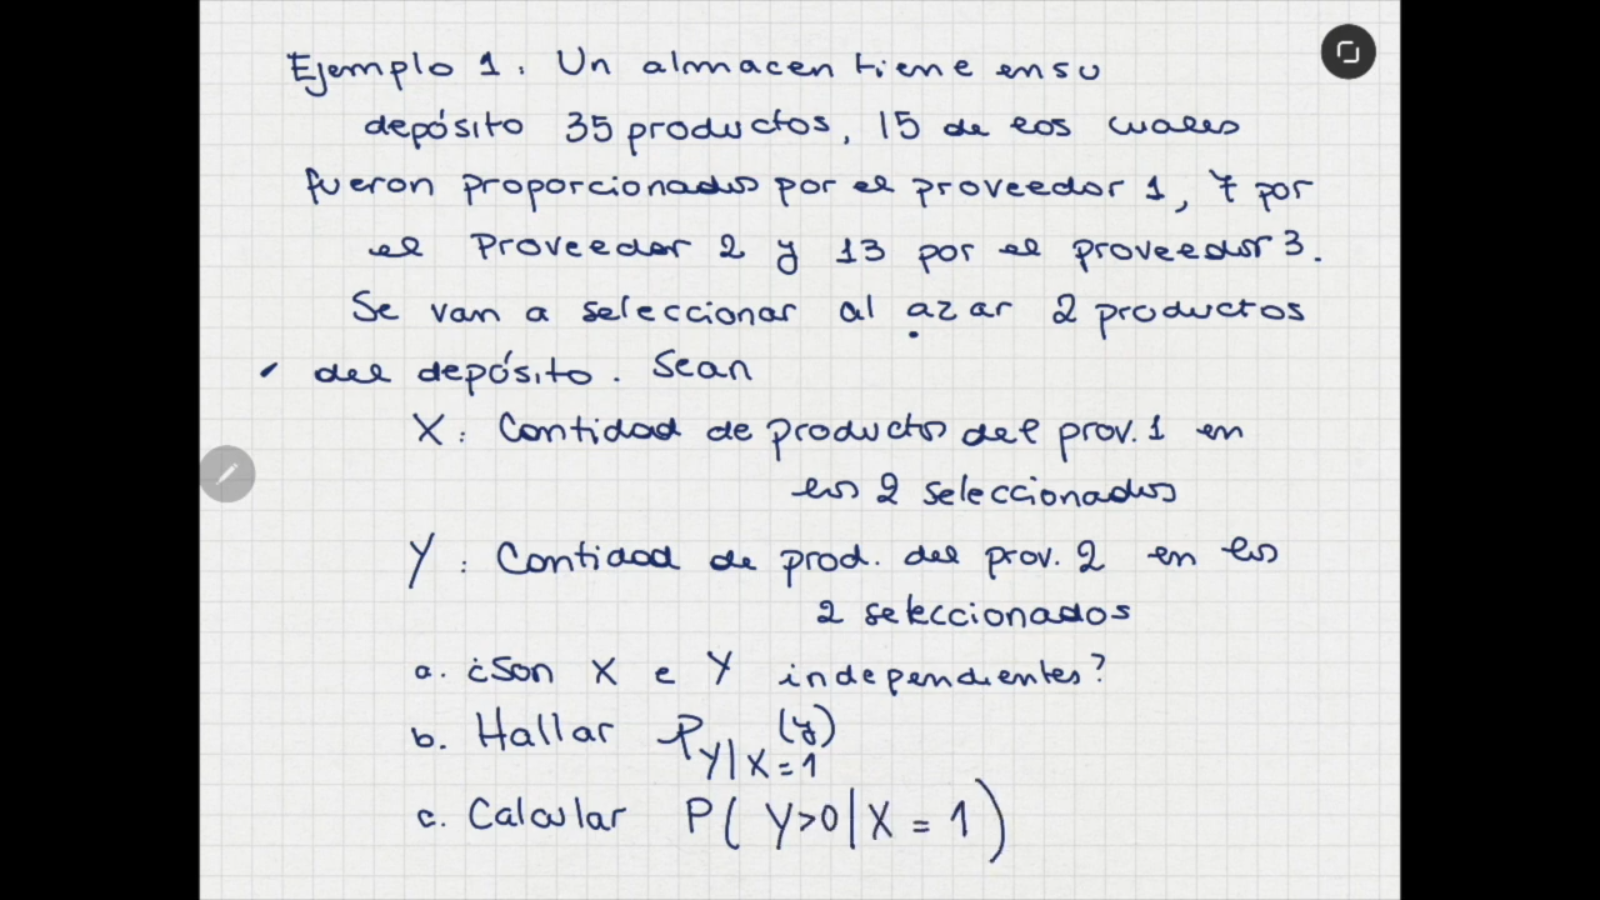 Ejemplo 1. Un almacen tiene en su
depósito 35 productos, 15 de los cuales
fueron proporcionados por el proveedor 1, 7 por
el Proveedor 2 y 13 por el proveedor 3.
Se van a seleccionar al azar 2 productos
del depósito. Sean
X: Cantidad de productos del prov. 1 en
los 2 seleccionados
Y: Cantidad de prod. del prov. 2 en los
2 seleccionados
a. ¿Son X e Y independientes?
b. Hallar P_{Y|X=1}(y)
c. Calcular P(Y>0|X=1)